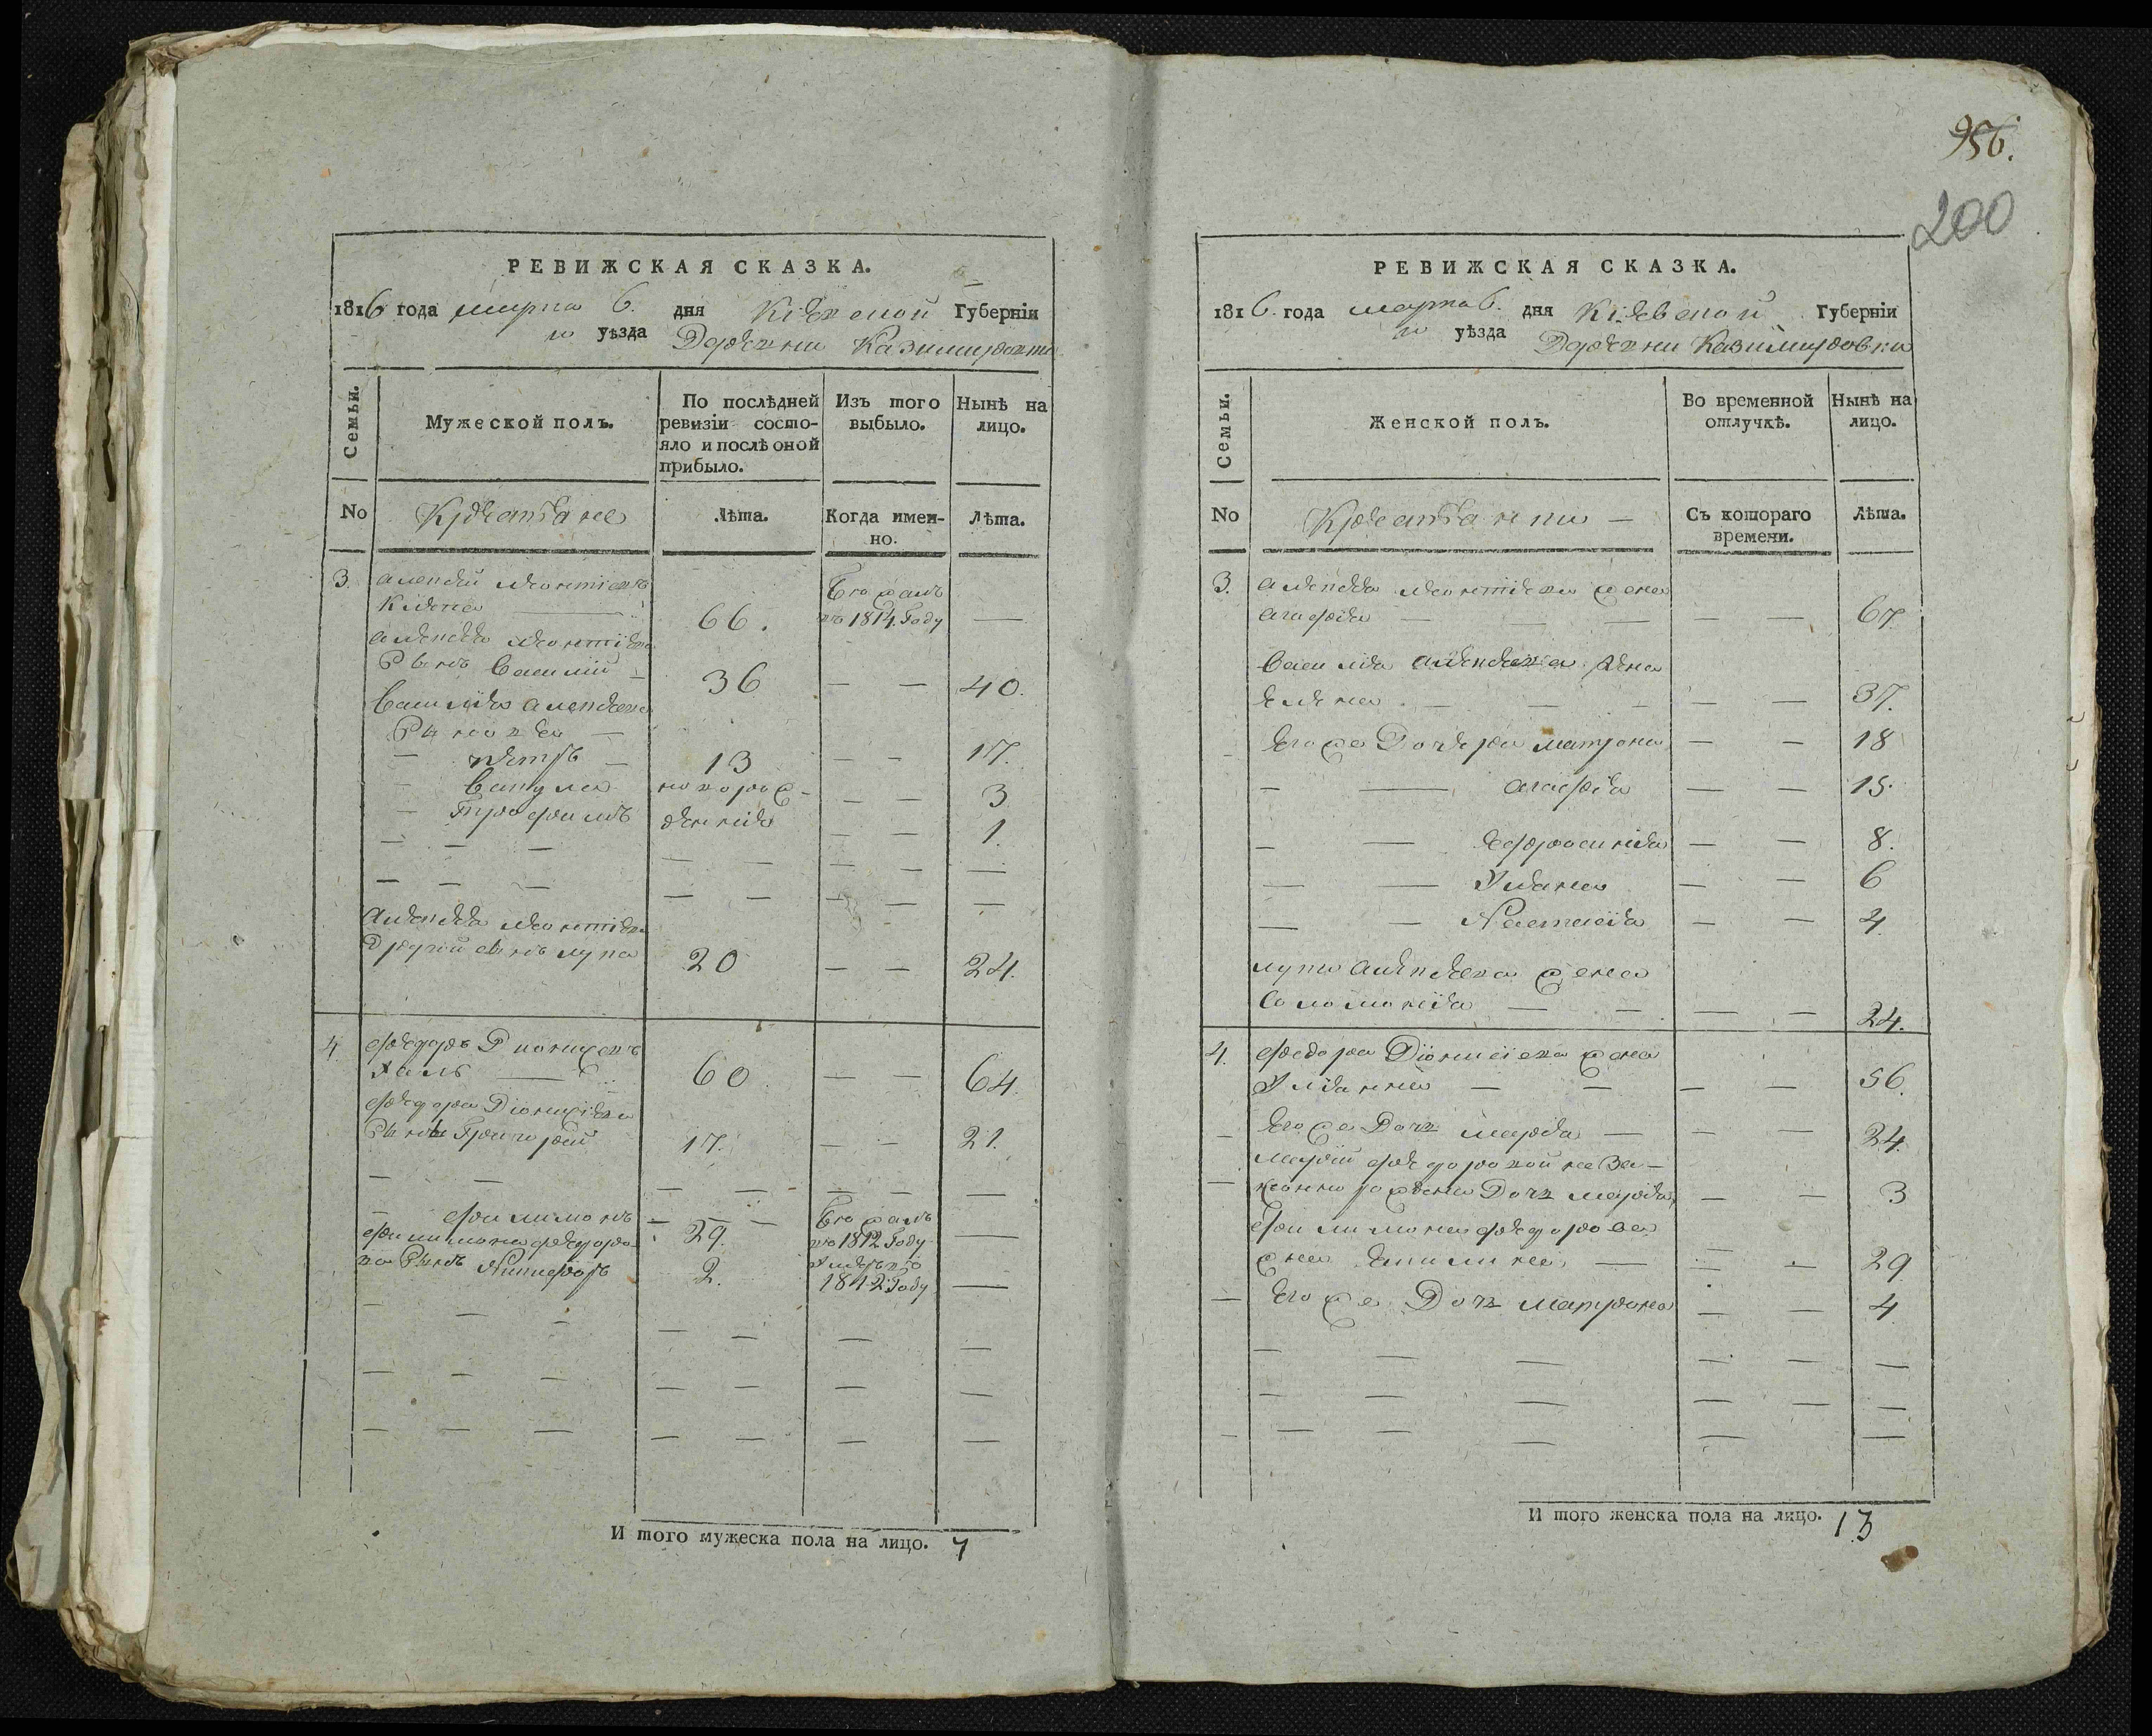 956.
200
РЕВИЖСКАЯ СКАЗКА.
1816 года марта 6. дня Кіевской Губерніи
го уѣзда Деревни Казимировки
Семьи.
Мужеской полъ.
По послѣдней ревизіи состояло и послѣ оной прибыло.
Изъ того выбыло.
Нынѣ на лицо.
No
Крестьяне
Лѣта.
Когда имен-
но.
Лѣта.
3. Алексей Леонтіевъ
66. Бежалъ
въ 1814. Году —
Алексея Леонтіева
сынъ Василій — 36 — — 40.
Василія Алексеева
сыновья —
— Петръ — 13 — — 17.
— Вакула новорож- — — 3
— Трофимъ денніе — — 1.
Алексея Леонтіева
Другой сынъ Лука 20 — — 24.
4. Федоръ
60. — — 64.
Федора Діонисіева
сынъ Григорей 17. — — 21.
— Филимонъ — 29. Бежалъ
въ 1812 Году —
Филимона Федоро-
ва сынъ Никифоръ 2. Умеръ въ
1812 Году —
И того мужеска пола на лицо. 7
РЕВИЖСКАЯ СКАЗКА.
1816. года марта 6. дня Кіевской Губерніи
го уѣзда Деревни Казимировки
Семьи.
Женской полъ.
Во временной отлучкѣ.
Нынѣ на лицо.
No
Крестьянки —
Съ котораго времени.
Лѣта.
3. Алексея Леонтіева жена
Агафія — — — — — 67.
Василія Алексеева жена
Елена — — — — — 37.
Его же Дочери Матрона — — 18
— — Агафія — — 15.
— — Ефросинія — — 8.
— — Уліана — — 6
— — Настасія — — 4
Луки Алексеева жена
Соломонія — — — — 24.
4. Федора Діонисіева жена
Уліянна — — — — 56.
— Его же Дочь Марія — — — 24.
Маріи Федоровой неза-
— конно рождена Дочь Марія — — 3
Филимона Федорова
жена — — — 29
— Его же Дочь Матрона — — 4
И того женска пола на лицо. 13